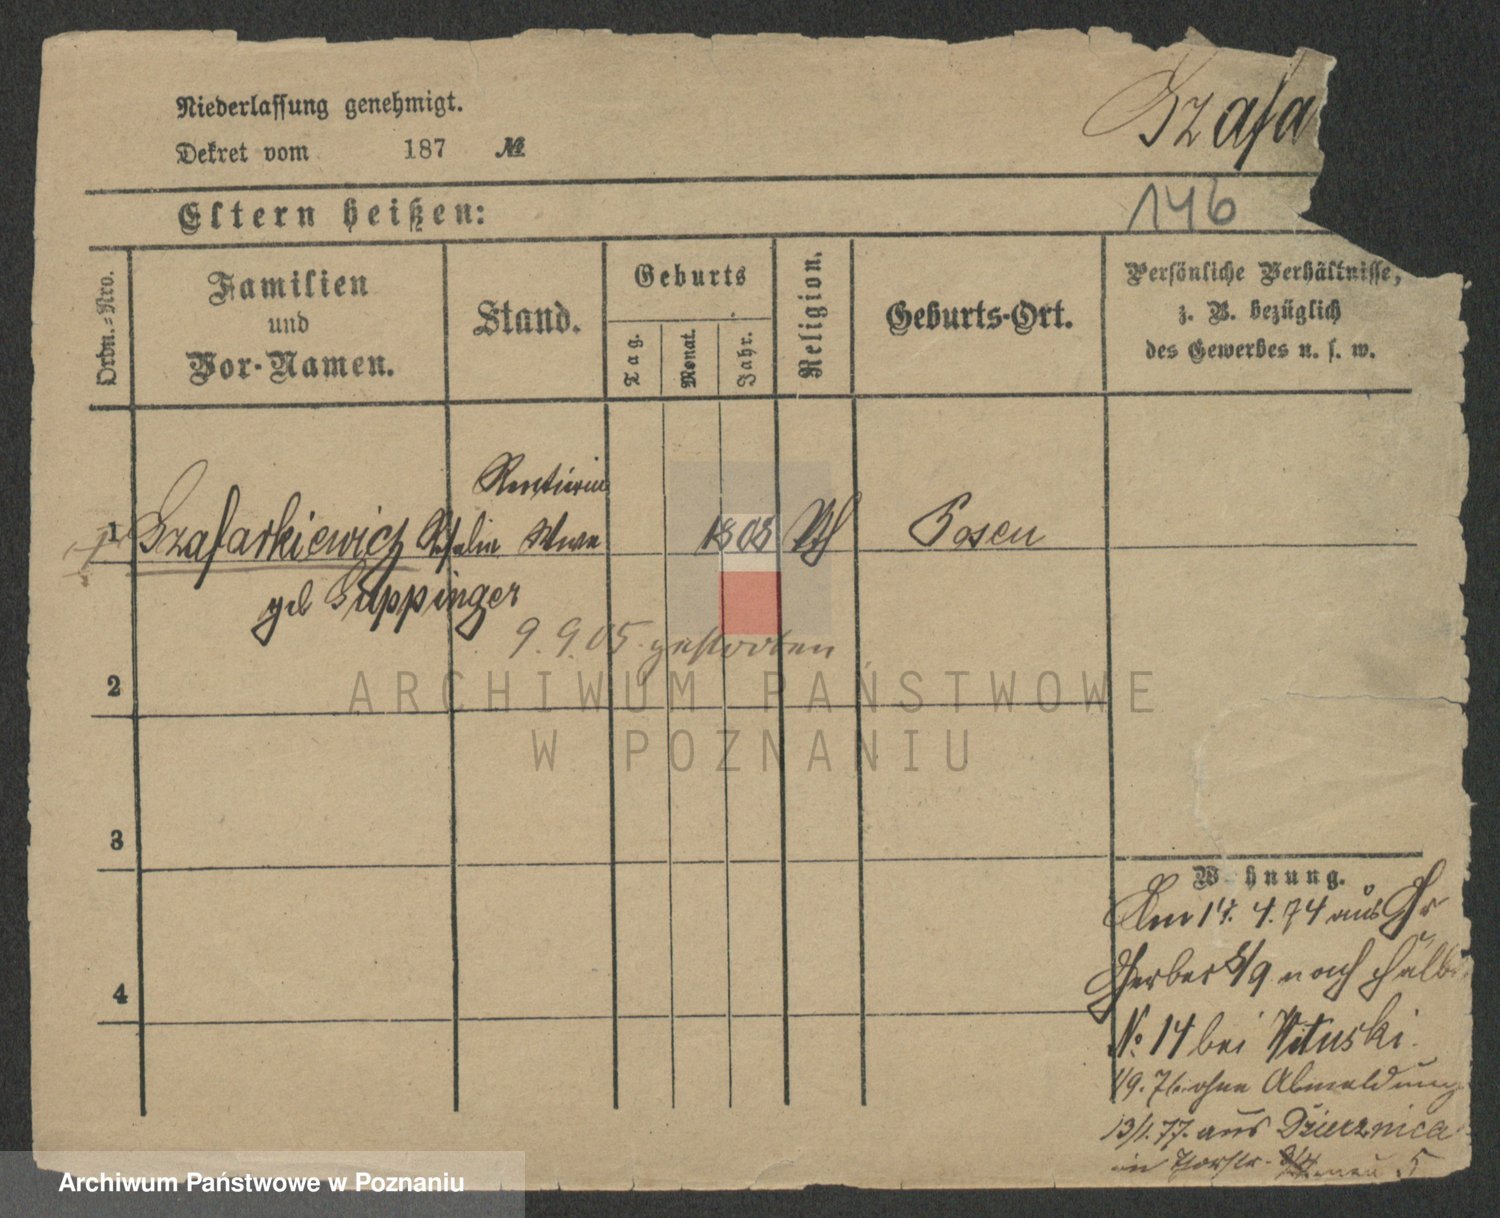 Niederlassung genehmigt.
Szafa
Dekret vom 187 №
Eltern heißen:
146
Ordn.-Nro.
Familien
und
Vor-Namen.
Stand.
Geburts
Tag.
Monat.
Jahr.
Religion.
Geburts-Ort.
Persönliche Verhältnisse,
z. B. bezüglich
des Gewerbes u. s. w.
Rentiere
1 Szafarkiewicz Wwe 1808 Posen
geb Suppinger
9.9.05. gestorben
2
ARCHIWUM PAŃSTWOWE
W POZNANIU
3
Wohnung.
Am 14.4.74 aus Gr
Gerber 5/9 nach Halb
4
№ 14 bei Wituski.
1/9.76 ohne Abmeldung
13/1.77. aus Dzierznica
in 5
Archiwum Państwowe w Poznaniu